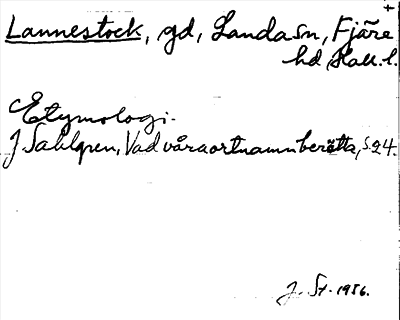 Lannestock, gd, Landa sn, Fjäre
hd, Hall. l.
Etymologi.
J Sahlgren, Vad våra ortnamn berätta, s. 24.
J. St. 1956.